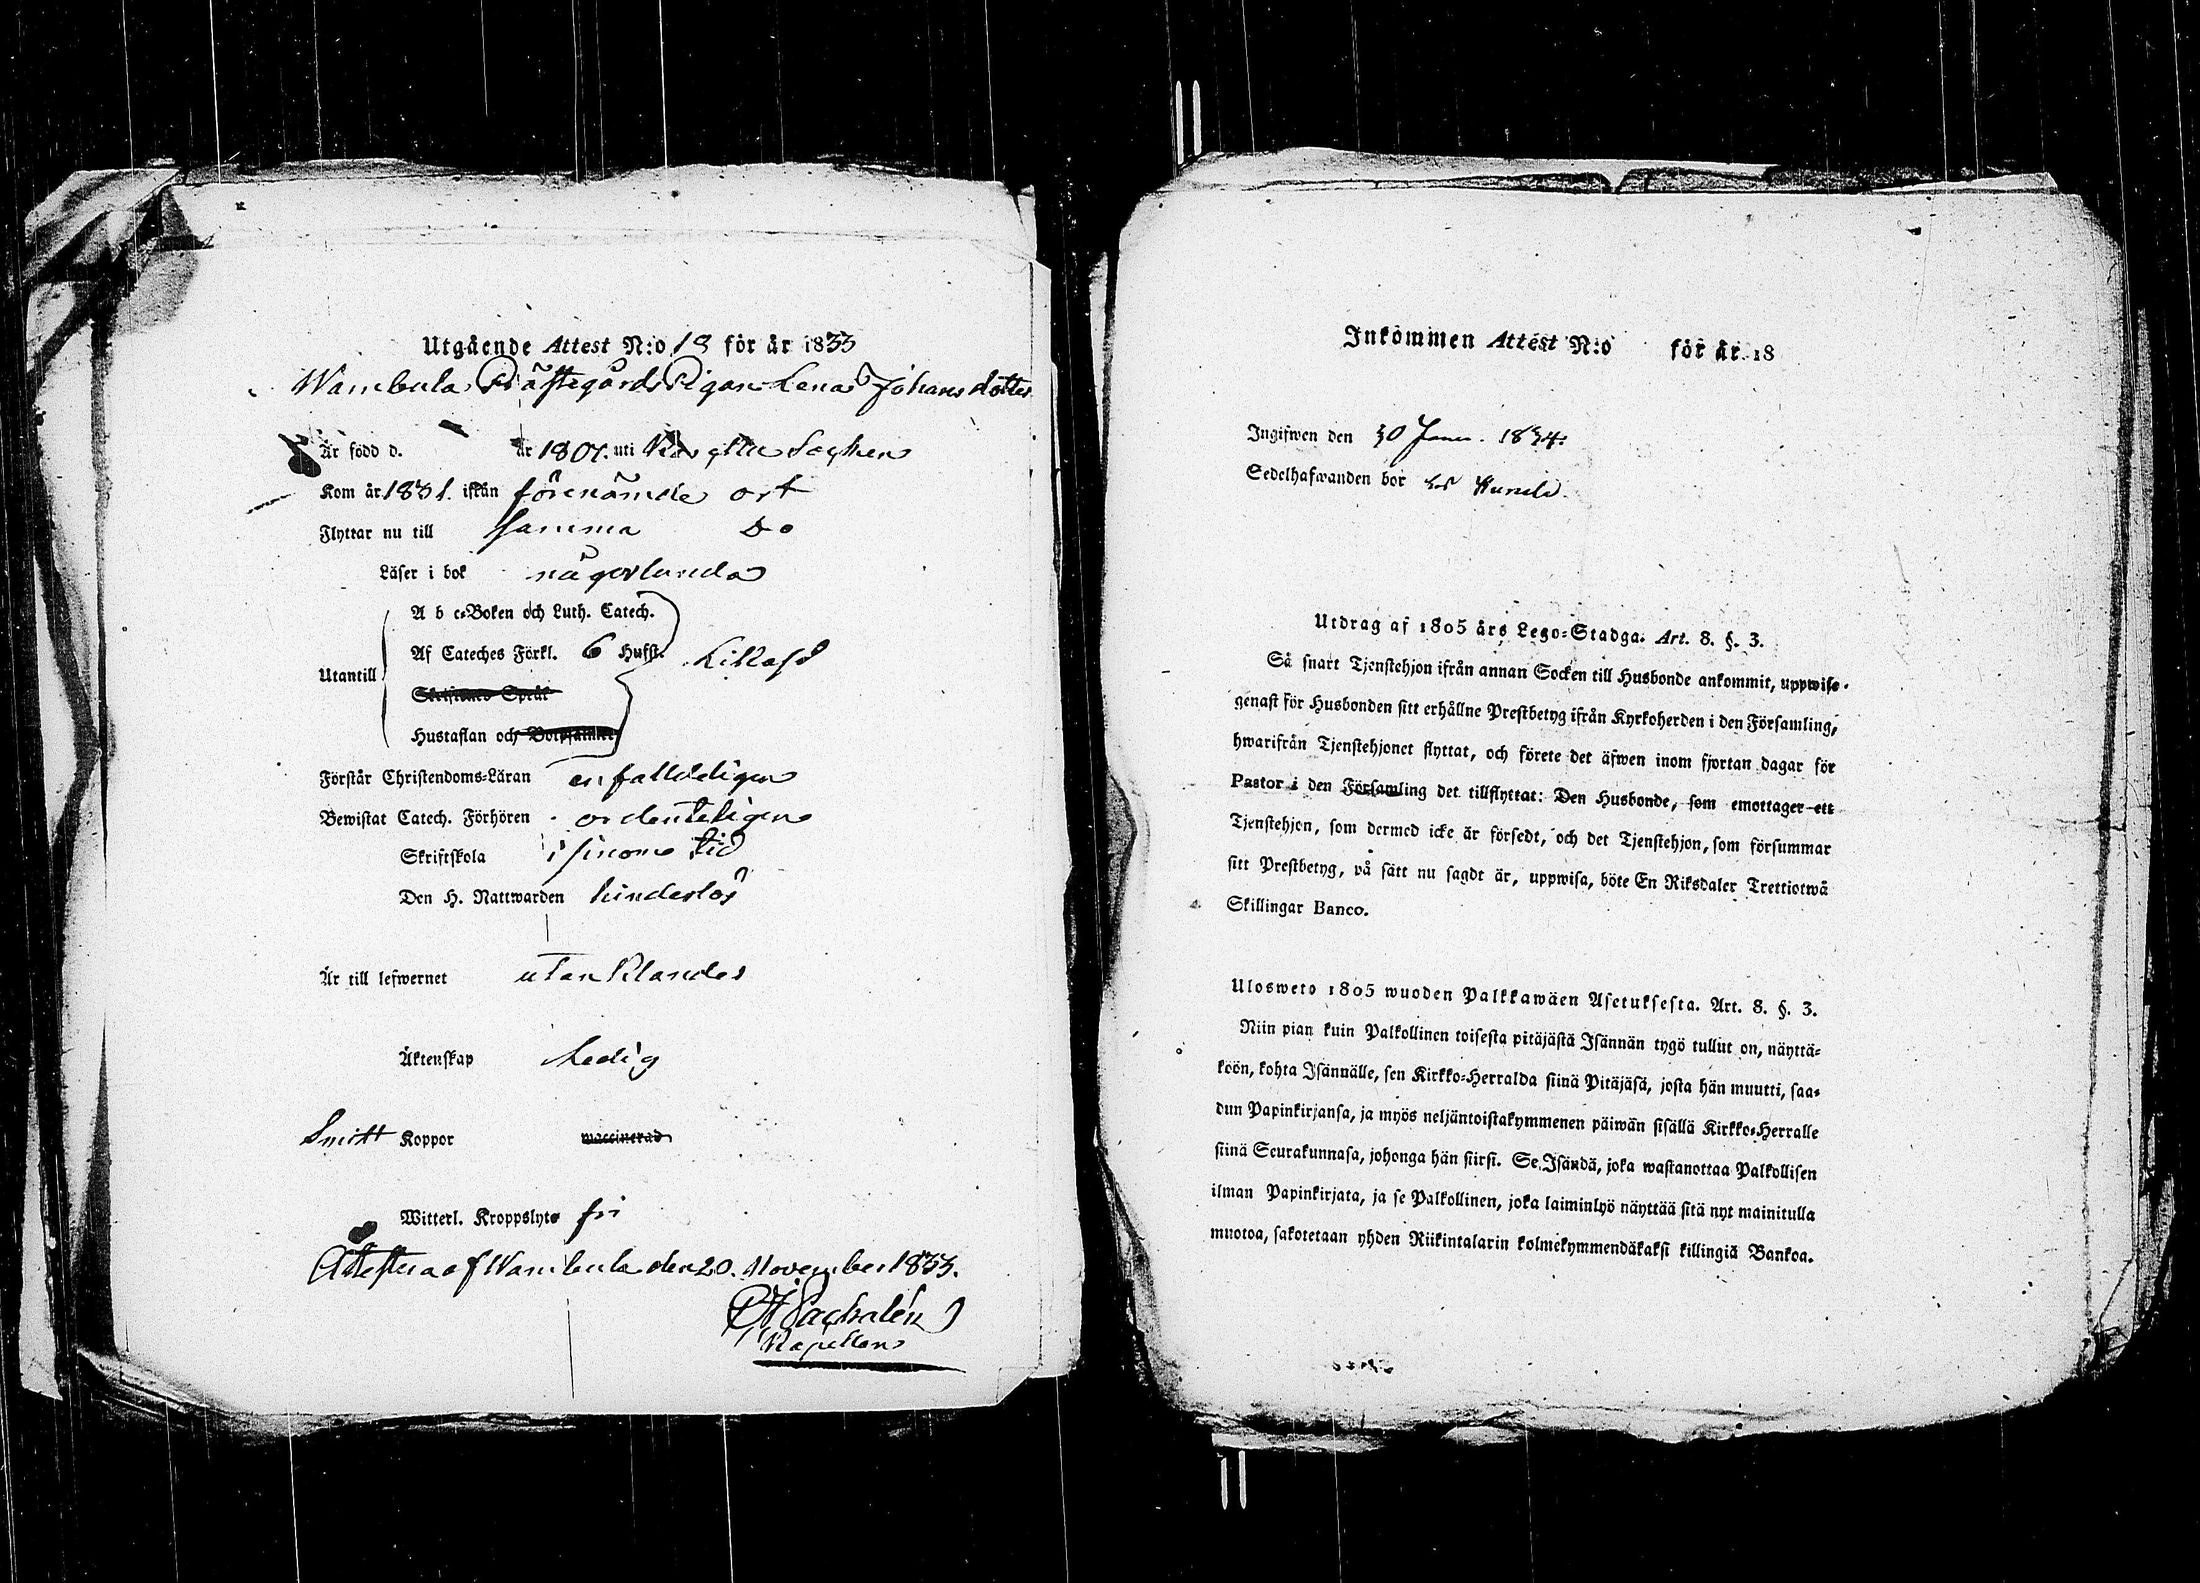 Utgående Attest N:o 18 för år 1833
Wambula Prästegårds Pigan Lena Johansdotter
Är född d. år 1807. uti Socken
Kom år 1831. ifrån förenämde ort
Flyttar nu till samma Do
Läser i bok någorlunda
A b c-Boken och Luth. Catech.
Af Cateches Förkl. 6 Hufst. likaså
Utantill
Skriftenes Språk
Hustaflan och Botpsalmer
Förstår Christendoms-Läran enfalldeligen
Bewistat Catech. Förhören ordenteligen
Skriftskola i sinom tid
Den H. Nattwarden hinderlös
Är till lefwernet utan klander
Äktenskap Ledig
Smitt Koppor waccinerad
Witterl. Kroppslyte fri
Attesteras af Wambula den 20. November 1833.
Kapellan
Inkommen Attest N:o för år 18
Ingifwen den 30 Janu. 1834:
Sedelhafwanden bor
Utdrag af 1805 års Lego-Stadga. Art. 8. §. 3.
Så snart Tjenstehjon ifrån annan Socken till Husbonde ankommit, uppwise
genast för Husbonden sitt erhållne Prestbetyg ifrån Kyrkoherden i den Församling,
hwarifrån Tjenstehjonet flyttat, och förete det äfwen inom fjortan dagar för
Pastor i den Församling det tillflyttat: Den Husbonde, som emottager ett
Tjenstehjon, som dermed icke är försedt, och det Tjenstehjon, som försummar
sitt Prestbetyg, på sätt nu sagdt är, uppwisa, böte En Riksdaler Trettiotwå
Skillingar Banco.
Ulosweto 1805 wuoden Palkkawäen Asetuksesta. Art. 8. §. 3.
Niin pian kuin Palkollinen toisesta pitäjästä Isännän tygö tullut on, näyttä-
köön, kohta Isännälle, sen Kirkko-Herralda siinä Pitäjäsä, josta hän muutti, saa-
dun Papinkirjansa, ja myös neljäntoistakymmenen päiwän sisällä Kirkko-Herralle
siinä Seurakunnasa, johonga hän siirsi. Se Isändä, joka wastanottaa Palkollisen
ilman Papinkirjata, ja se Palkollinen, joka laiminlyö näyttää sitä nyt mainitulla
muotoa, sakotetaan yhden Riikintalarin kolmekymmendäkaksi killingiä Bankoa.